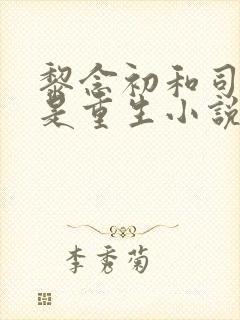 黎念初和司
是重生小说
李秀菊